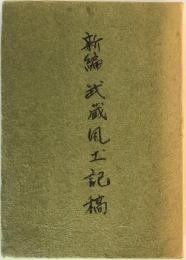 新編 武蔵風土記稿